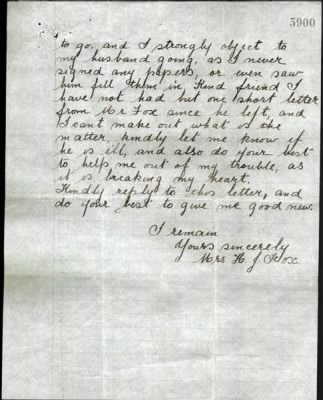 5900
to go, and I strongly object to
my husband going, as I never
signed any papers, or even saw
him fill them in. Kind friend I
have not had but one short letter
from Mr Fox since he left, and
I cant make out what is the
matter, kindly let me know if
he is ill, and also do your best
to help me out of my trouble, as
it is breaking my heart.
Kindly reply to this letter, and
do your best to give me good new.
I remain
Yours sincerely
Mrs H J Fox.